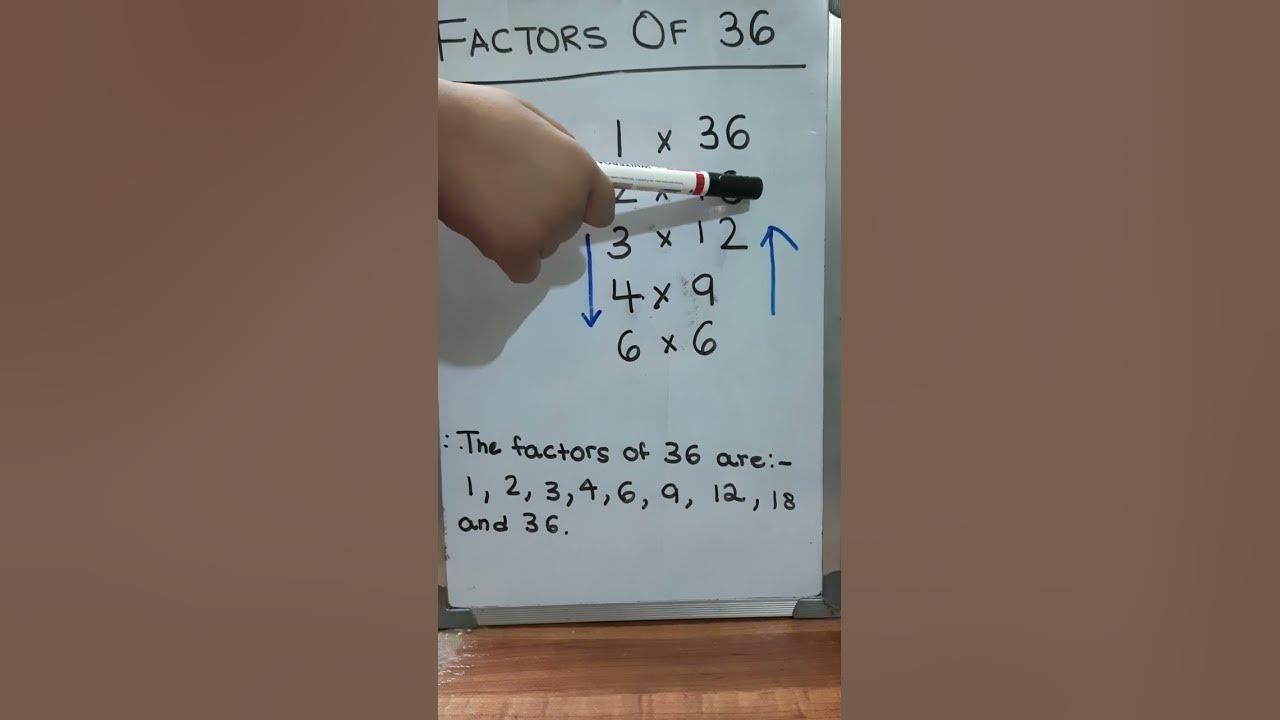 FACTORS OF 36
1 x 36
2 x 18
3 x 12
4 x 9
6 x 6
∴ The factors of 36 are:-
1, 2, 3, 4, 6, 9, 12, 18
and 36.